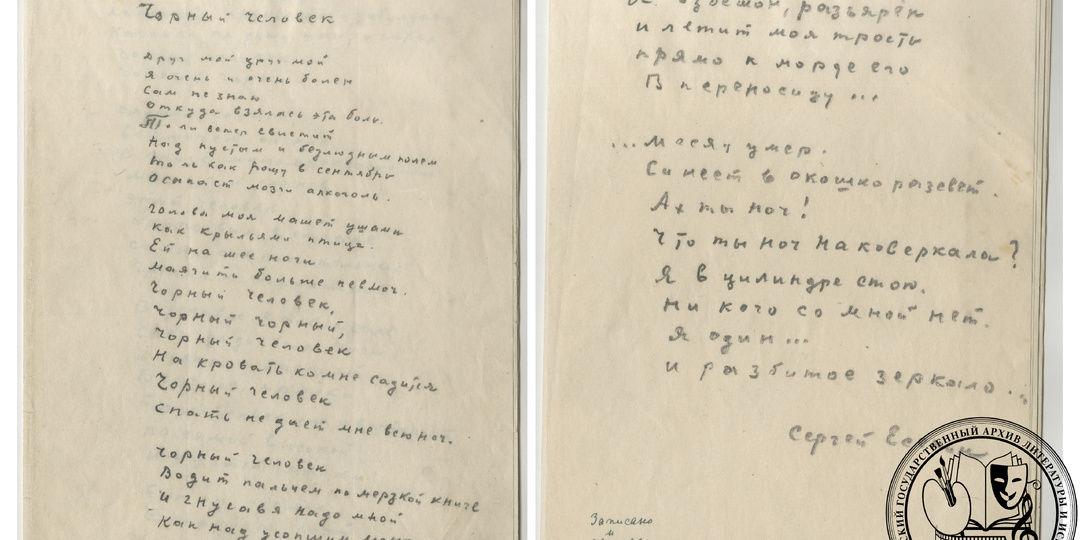 Чорный человек
Друг мой друг мой
я очень и очень болен
Сам не знаю
откуда взялась эта боль.
То ли ветер свистит
Над пустым и безлюдным полем
то ль как рощу в сентябрь
Осыпает мозги алкоголь.
Голова моя машет ушами
как крыльями птица.
Ей на шее ноги
маячить больше невмоч.
Чорный человек,
Чорный чорный,
Чорный человек
На кровать ко мне садится
Чорный человек
Спать не дает мне всю ноч.
Чорный человек
Водит пальцем по мерзкой книге
И гнусавя надо мной
Как над усопшим
взбешон, разъярен
и летит моя трость
прямо к морде его
В переносицу ...
...Месяц умер.
Синеет в окошко разсвет.
Ах ты ноч!
Что ты ноч наковеркала?
Я в цилиндре стою.
Ни кого со мной нет.
Я один ...
и разбитое зеркало ...
Сергей
Записано
ГОСУДАРСТВЕННЫЙ АРХИВ ЛИТЕРАТУРЫ И